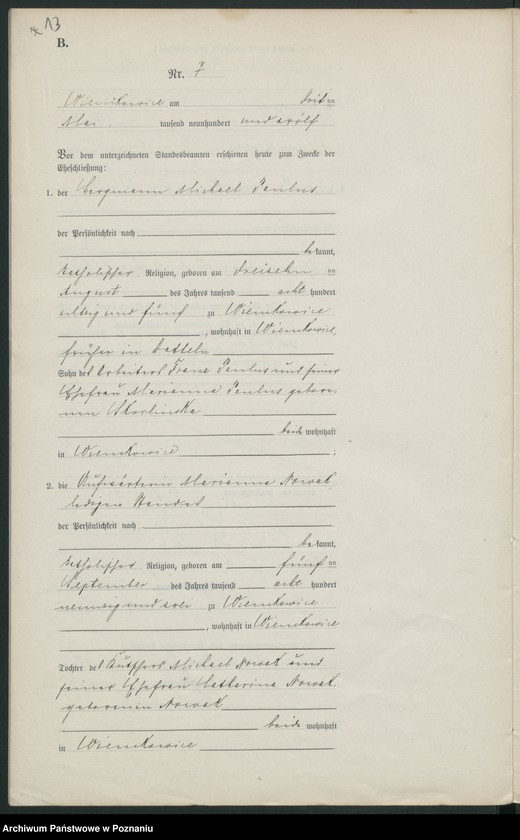 13
B.
Nr. 7
Wienskowice am dritten
Mai tausend neunhundert und zwölf
Vor dem unterzeichneten Standesbeamten erschienen heute zum Zwecke der
Eheschließung:
1. der Bergmann Michael Paulus
der Persönlichkeit nach
bekannt,
katholischer Religion, geboren am dreizehnten
August des Jahres tausend acht hundert
achtzig und fünf zu Wienskowice
, wohnhaft in Wienskowice,
früher in
Sohn des Arbeiters Franz Paulus und seiner
Ehefrau Marianna Paulus gebore-
nen Skorlinska
beide wohnhaft
in Wienskowice ;
2. die Marianna Nowak,
ledigen Standes
der Persönlichkeit nach
bekannt,
katholischer Religion, geboren am fünften
September des Jahres tausend acht hundert
neunzig und drei zu Wienskowice
, wohnhaft in Wienskowice
Tochter des Michael Nowak und
seiner Ehefrau Katharina Nowak,
geborenen Nowak
beide wohnhaft
in Wienskowice
Archiwum Państwowe w Poznaniu